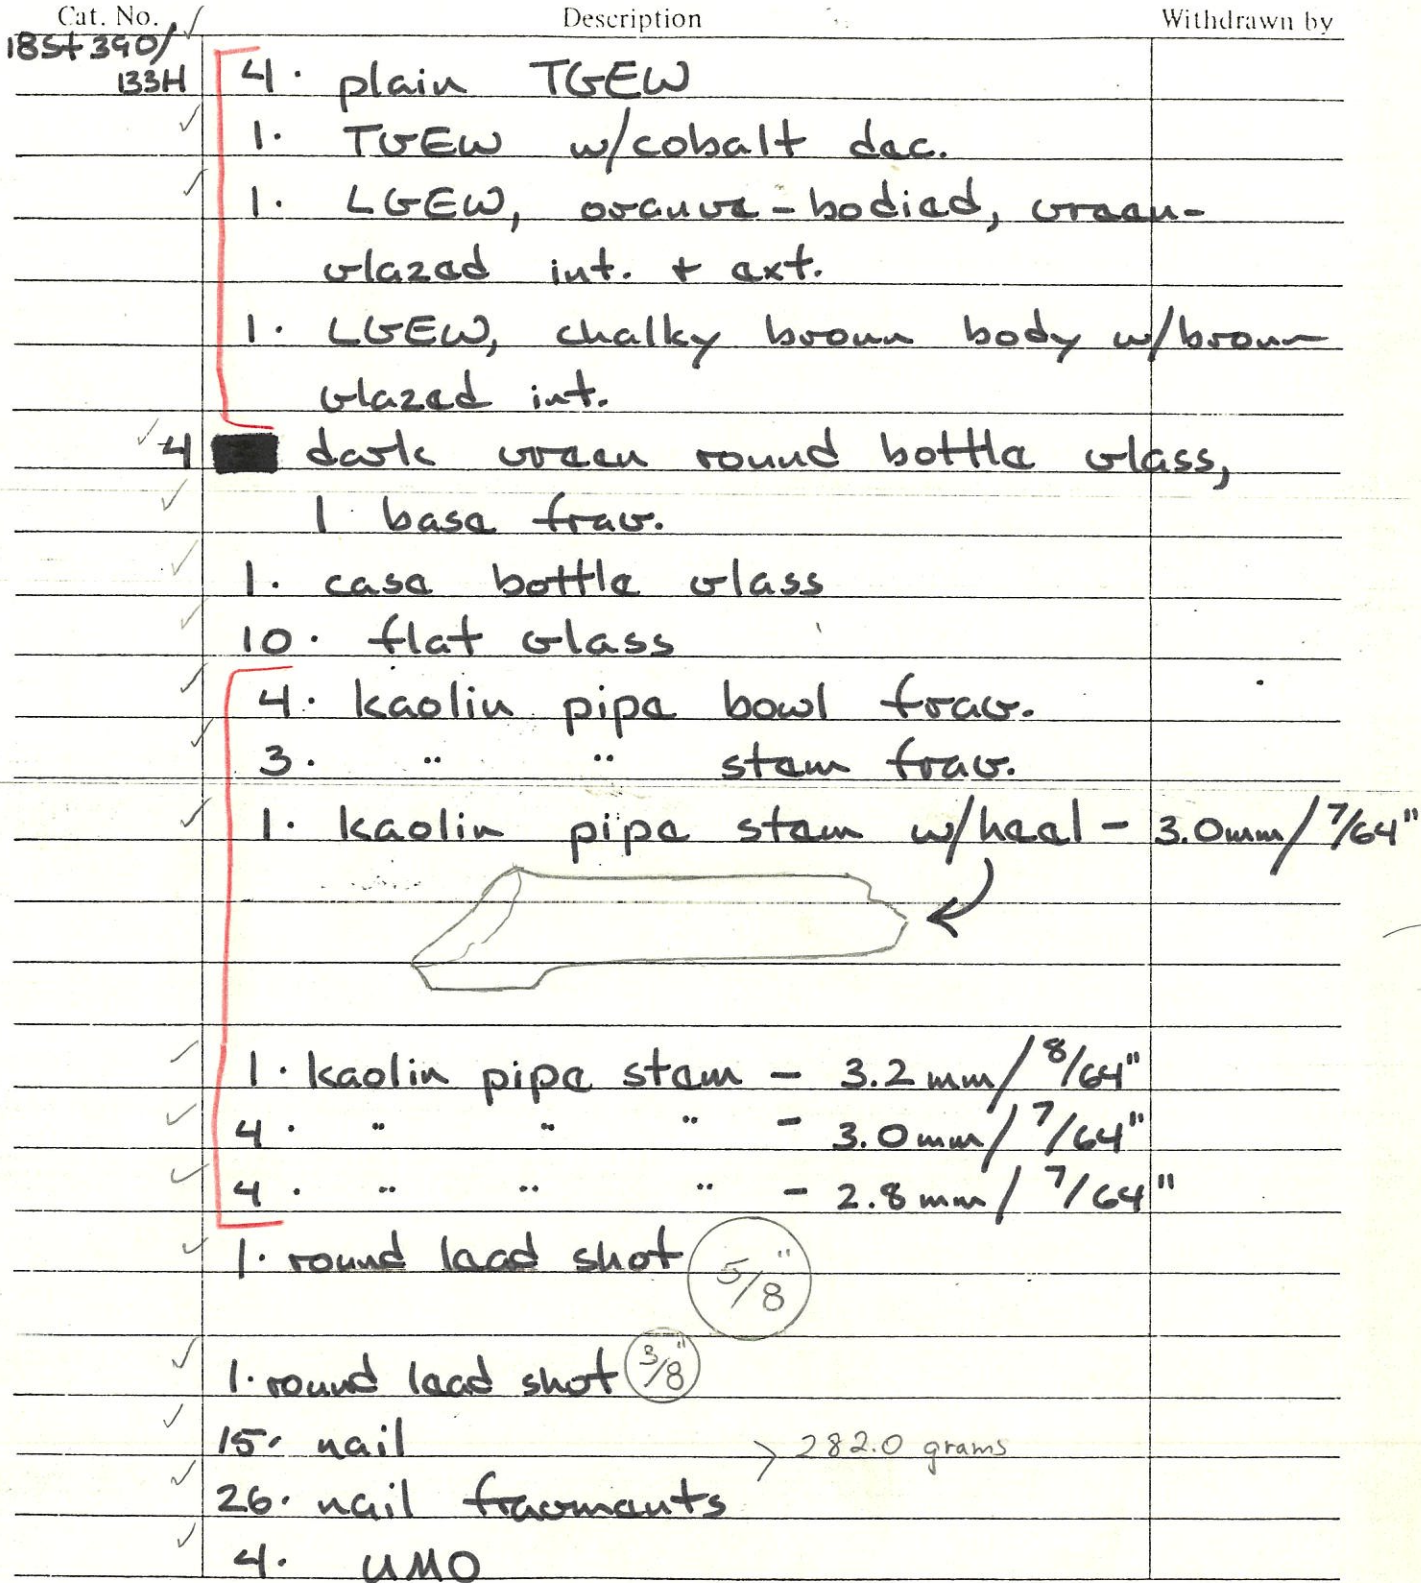 Cat. No. Description Withdrawn by
18St390/
133H
4. plain TGEW
1. TGEW w/cobalt dec.
1. LGEW, orange-bodied, green-
glazed int. + ext.
1. LGEW, chalky brown body w/brown
glazed int.
4 dark green round bottle glass,
1 base frag.
1. case bottle glass
10. flat glass
4. kaolin pipe bowl frag.
3. " " stem frag.
1. kaolin pipe stem w/heel - 3.0mm/7/64"
1. kaolin pipe stem - 3.2mm/8/64"
4. " " " - 3.0mm/7/64"
4. " " " - 2.8mm/7/64"
1. round lead shot 5/8"
1. round lead shot 3/8"
15. nail
> 282.0 grams
26. nail fragments
4. UMO